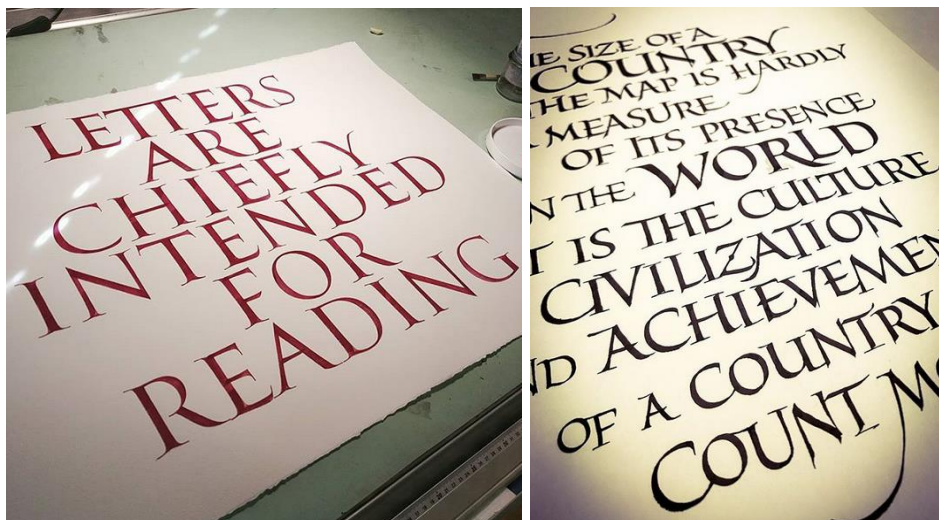 LETTERS
ARE
CHIEFLY
INTENDED
FOR
READING
SIZE OF A
COUNTRY
THE MAP IS HARDLY
MEASURE
OF ITS PRESENCE
THE WORLD
IS THE CULTURE
CIVILIZATION
ACHIEVEMEN
OF A COUNTRY
COUNT